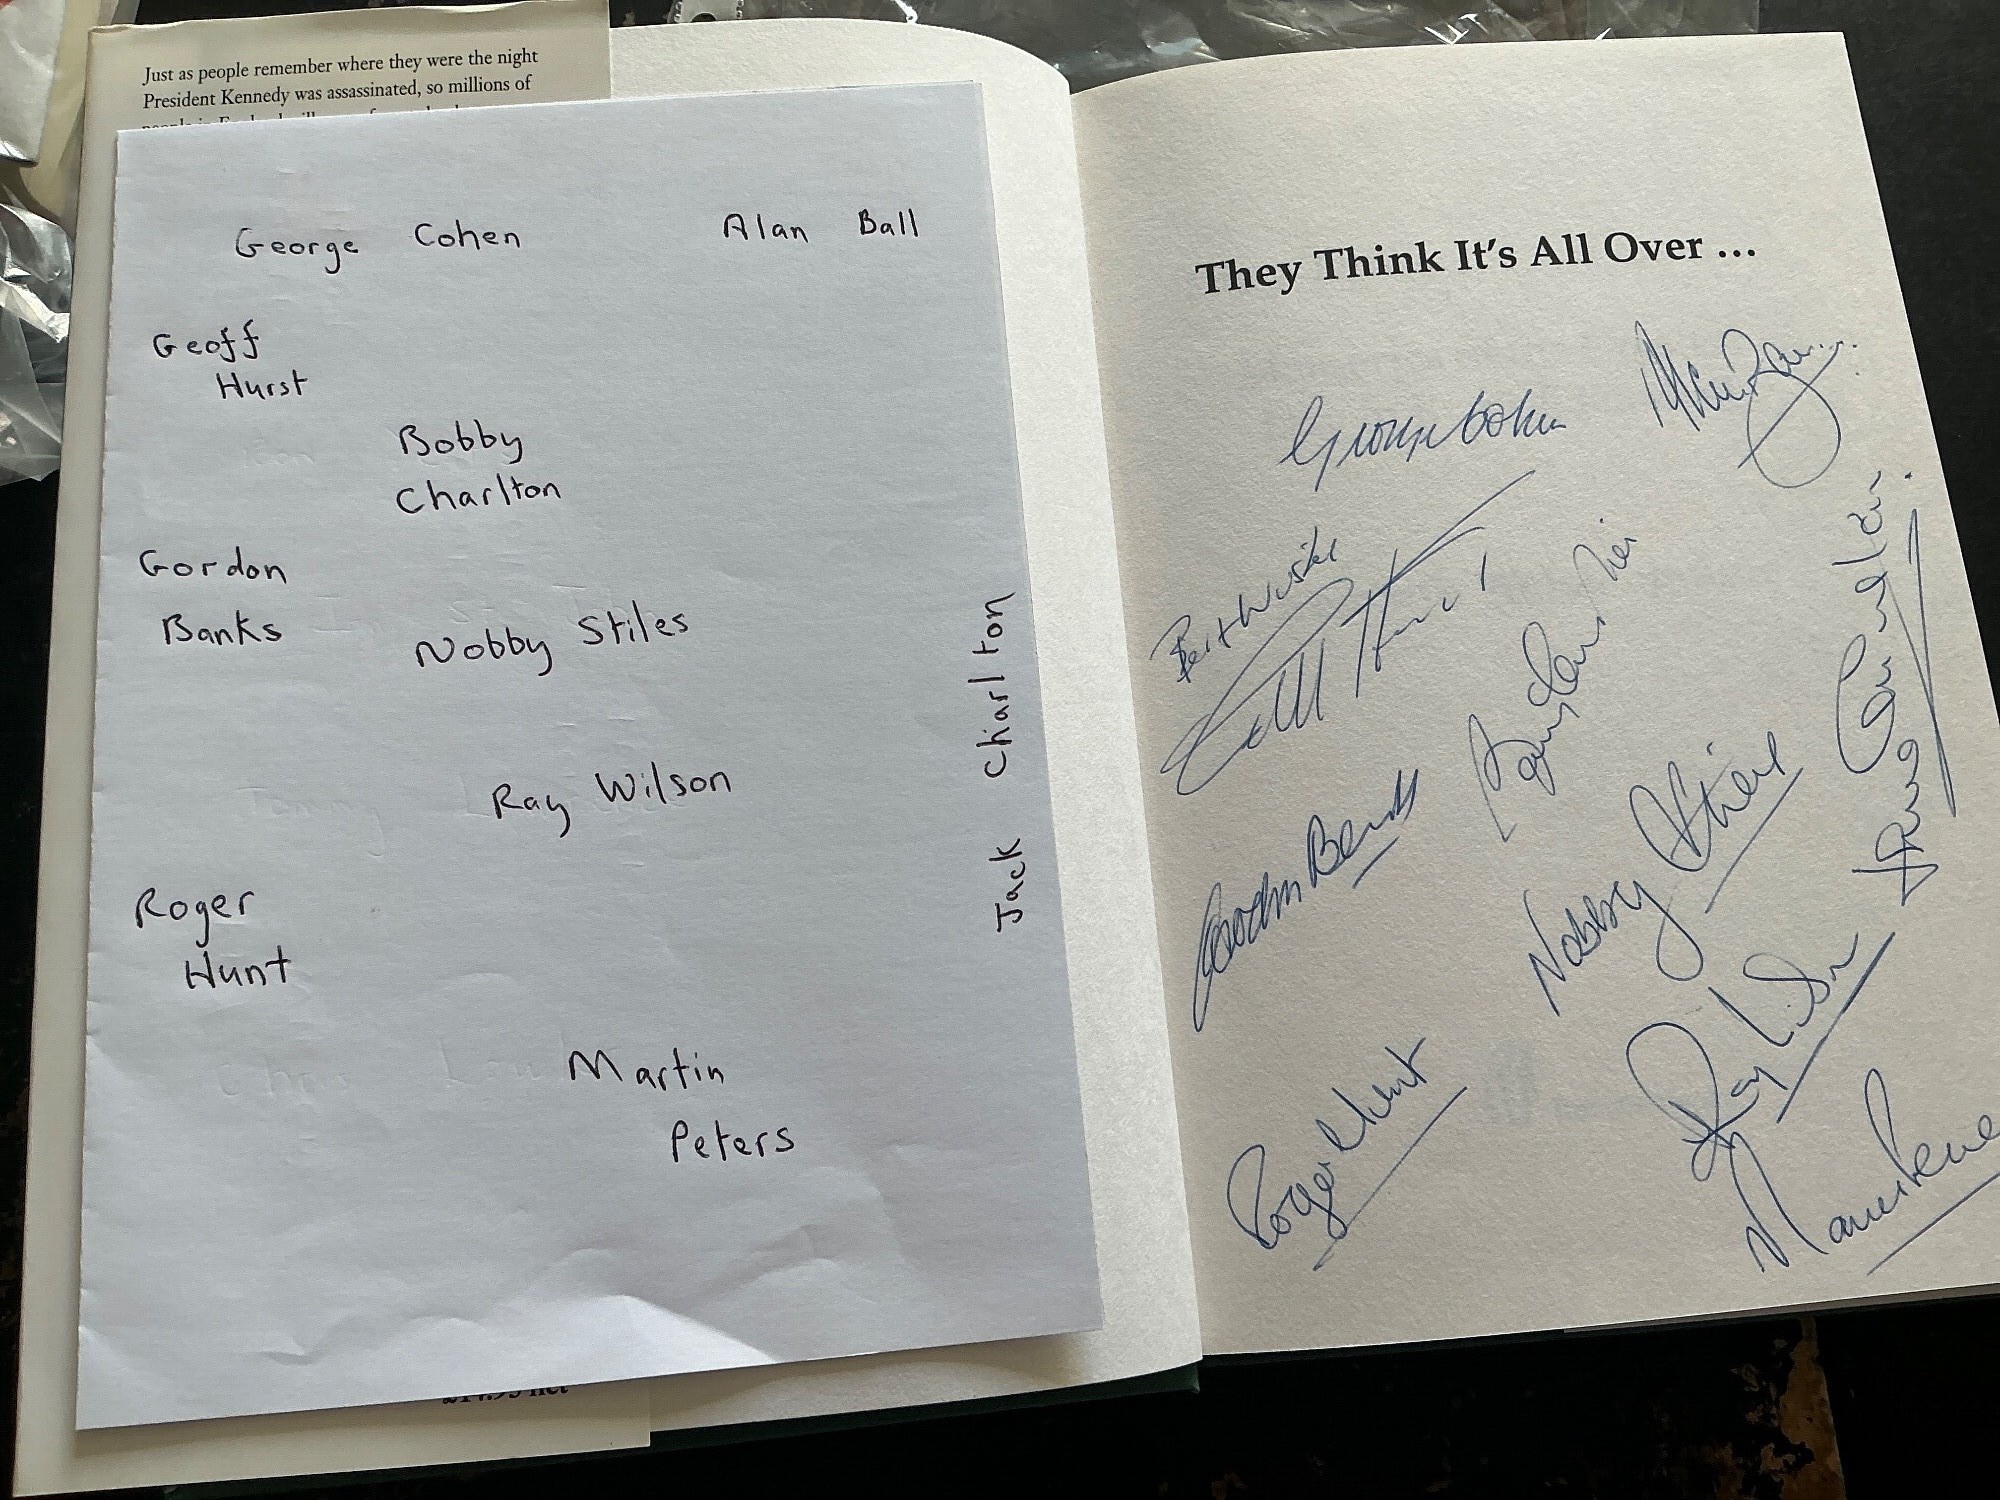 Just as people remember where they were the night
President Kennedy was assassinated, so millions of
George Cohen
Alan Ball
Geoff
Hurst
Bobby
Charlton
Gordon
Banks
Nobby Stiles
Jack Charlton
Ray Wilson
Roger
Hunt
Martin
Peters
They Think It's All Over ...
George Cohen
Alan Ball
Best Wishes
Geoff Hurst
Bobby Charlton
Jack Charlton
Gordon Banks
Nobby Stiles
Ray Wilson
Roger Hunt
Martin Peters